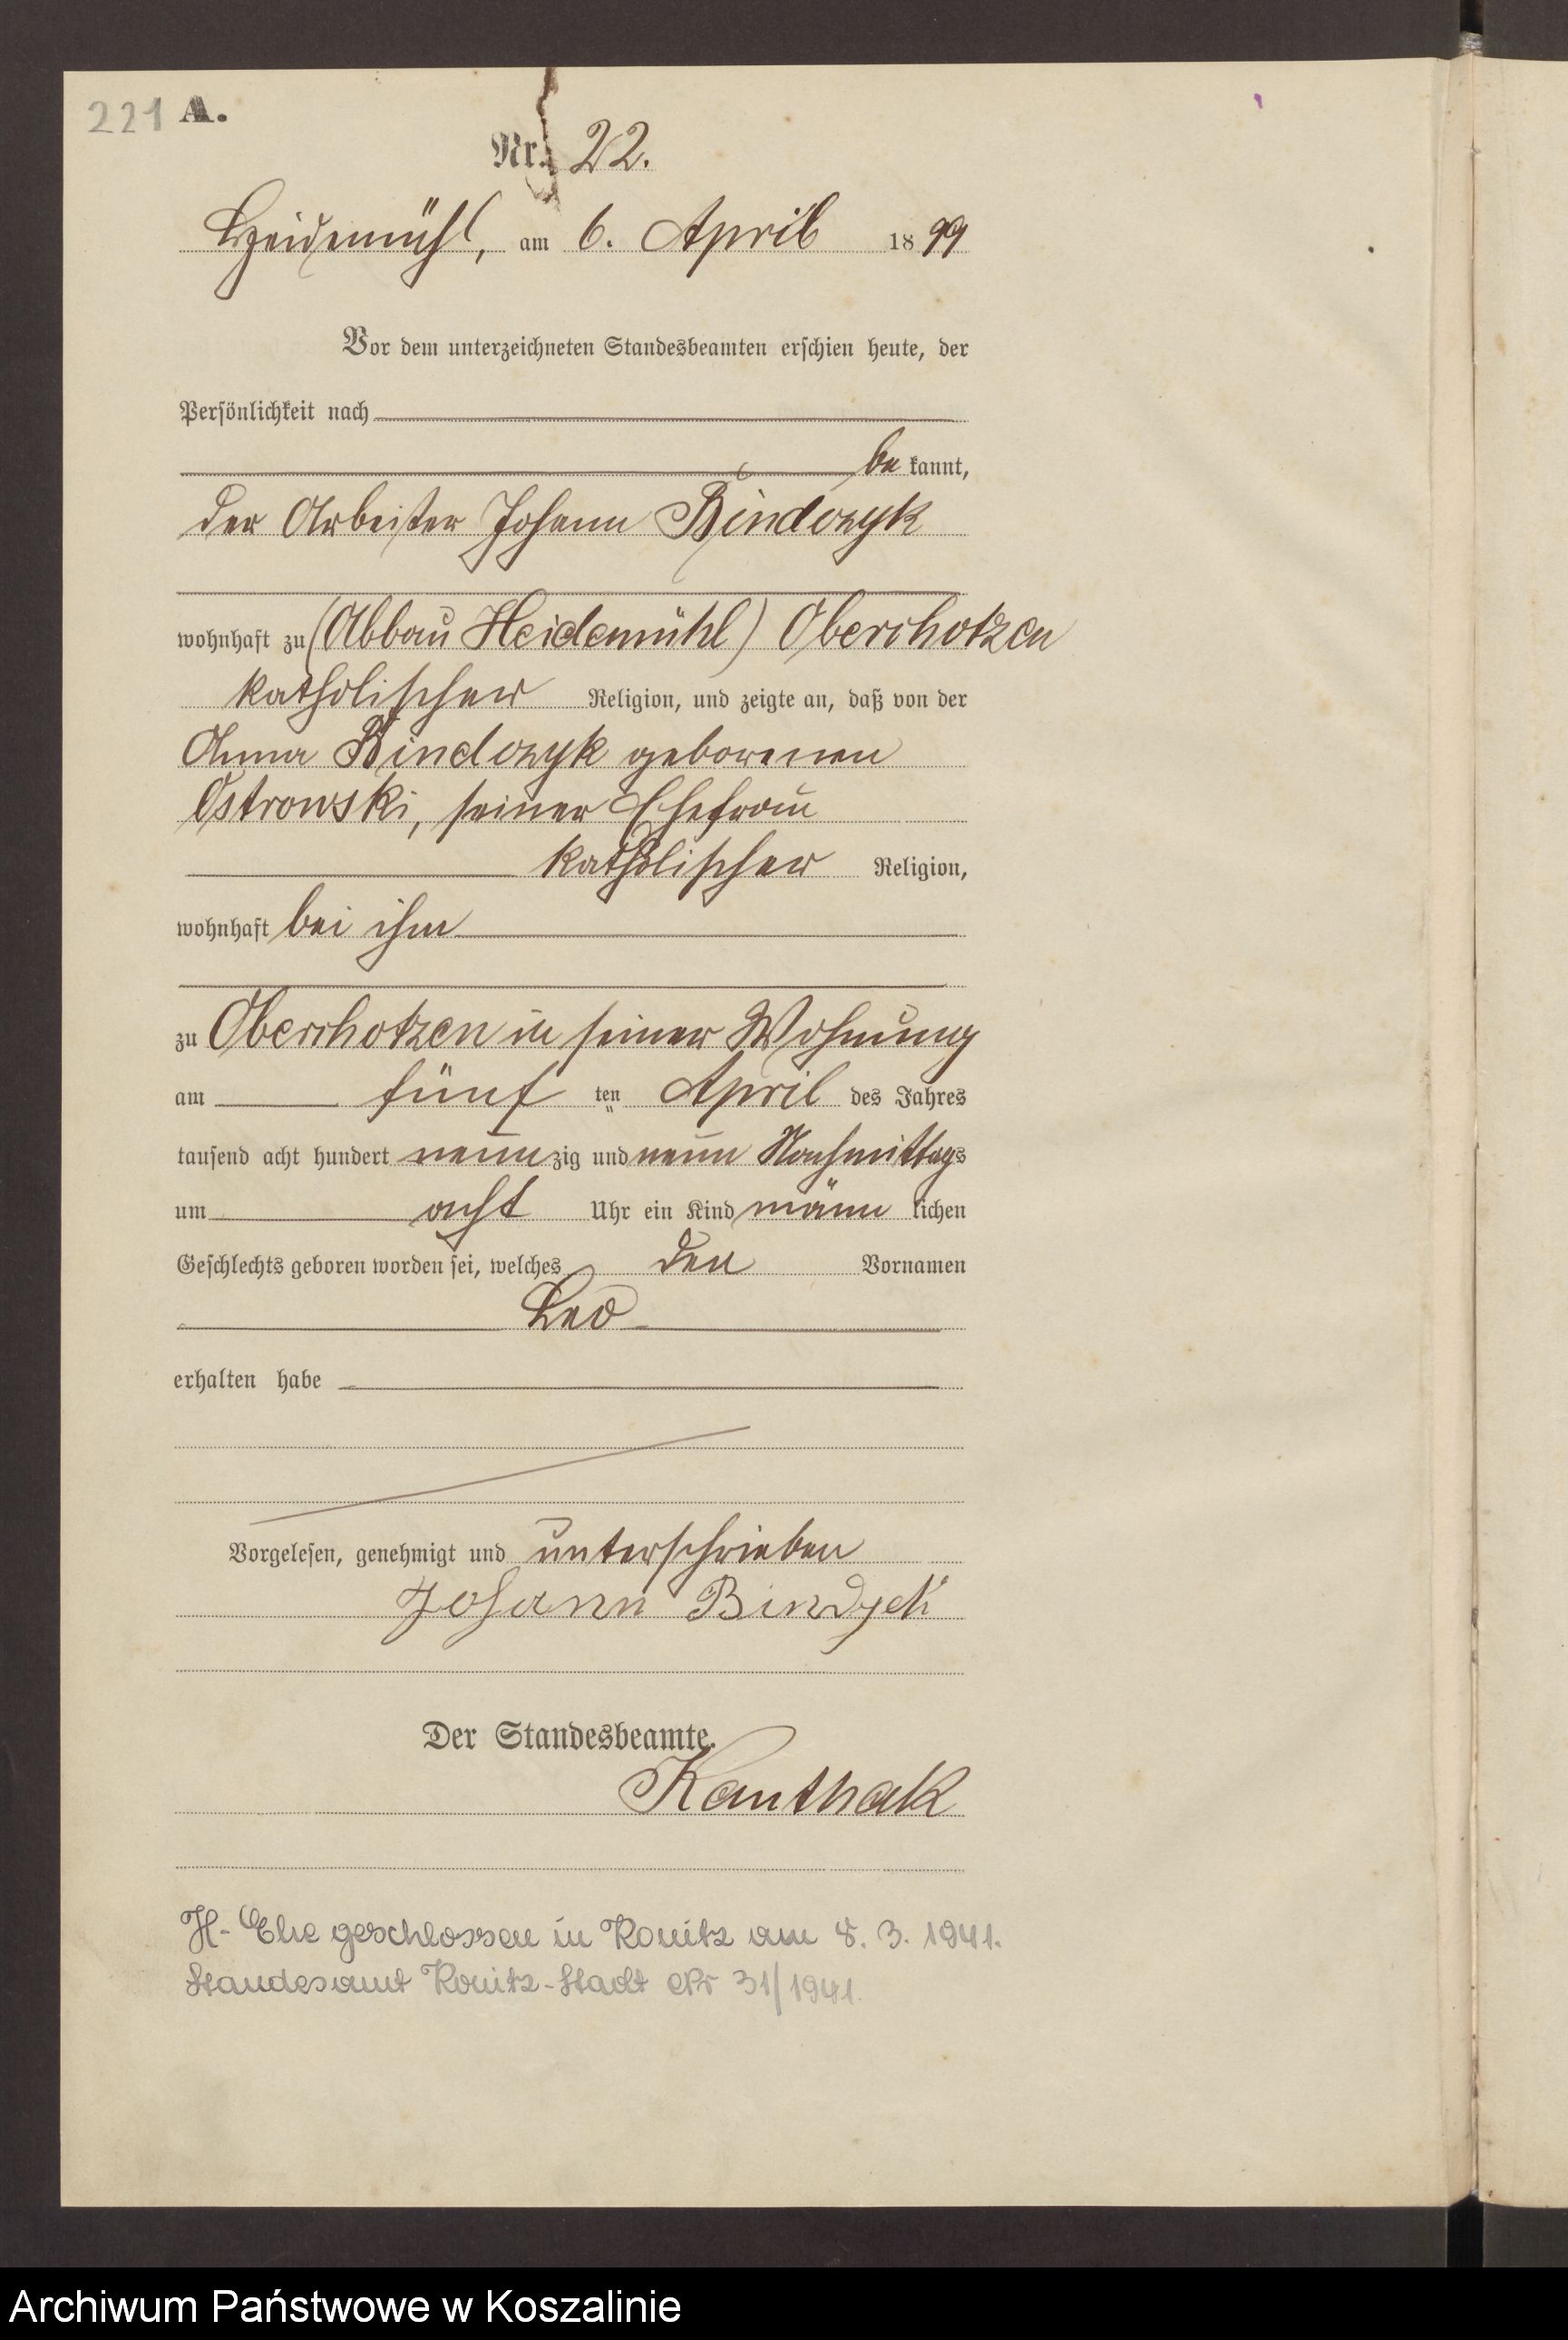 221 A.
Nr. 22.
Heidemühl, am 6. April 1899
Vor dem unterzeichneten Standesbeamten erschien heute, der
Persönlichkeit nach
be kannt,
der Arbeiter Johann Bindczyk
wohnhaft zu (Abbau Heidemühl) Oberchotzen
katholischer Religion, und zeigte an, daß von der
Anna Bindczyk geborenen
Ostrowski, seiner Ehefrau
katholischer Religion,
wohnhaft bei ihm
zu Oberchotzen in seiner Wohnung
am fünf ten April des Jahres
tausend acht hundert neunzig und neun Nachmittags
um acht Uhr ein Kind männ lichen
Geschlechts geboren worden sei, welches den Vornamen
Leo
erhalten habe
Vorgelesen, genehmigt und unterschrieben
Johann
Der Standesbeamte.
Kanthak
H- Ehe geschlossen in Konitz am 8. 3. 1941.
Standesamt Konitz-Stadt Nr 31/1941.
Archiwum Państwowe w Koszalinie